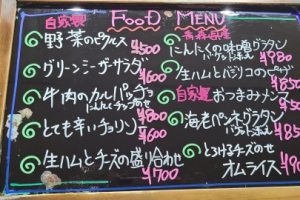 FOOD MENU
自家製
野菜のピクルス
¥500
グリーンシーザーサラダ
¥600
牛肉のカルパッチョ
にんにくチップのせ
¥800
とても辛いチョリソー
¥600
生ハムとチーズの盛り合わせ
¥700
青森県産
にんにくの味噌グラタン
バゲット添え
¥980
生ハムとバジリコのピザ
¥850
自家製 おつまみナン
海老ペンネグラタン
とろけるチーズのせ
オムライス